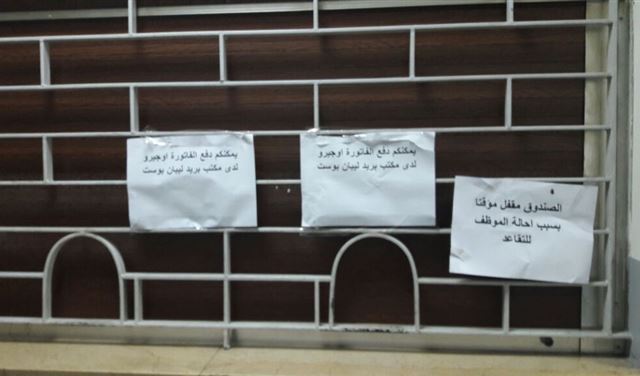 يمكنكم دفع الفاتورة اوجيرو
لدى مكتب بريد ليبان بوست
يمكنكم دفع الفاتورة اوجيرو
لدى مكتب بريد ليبان بوست
الصندوق مقفل موقتا
بسبب احالة الموظف
للتقاعد